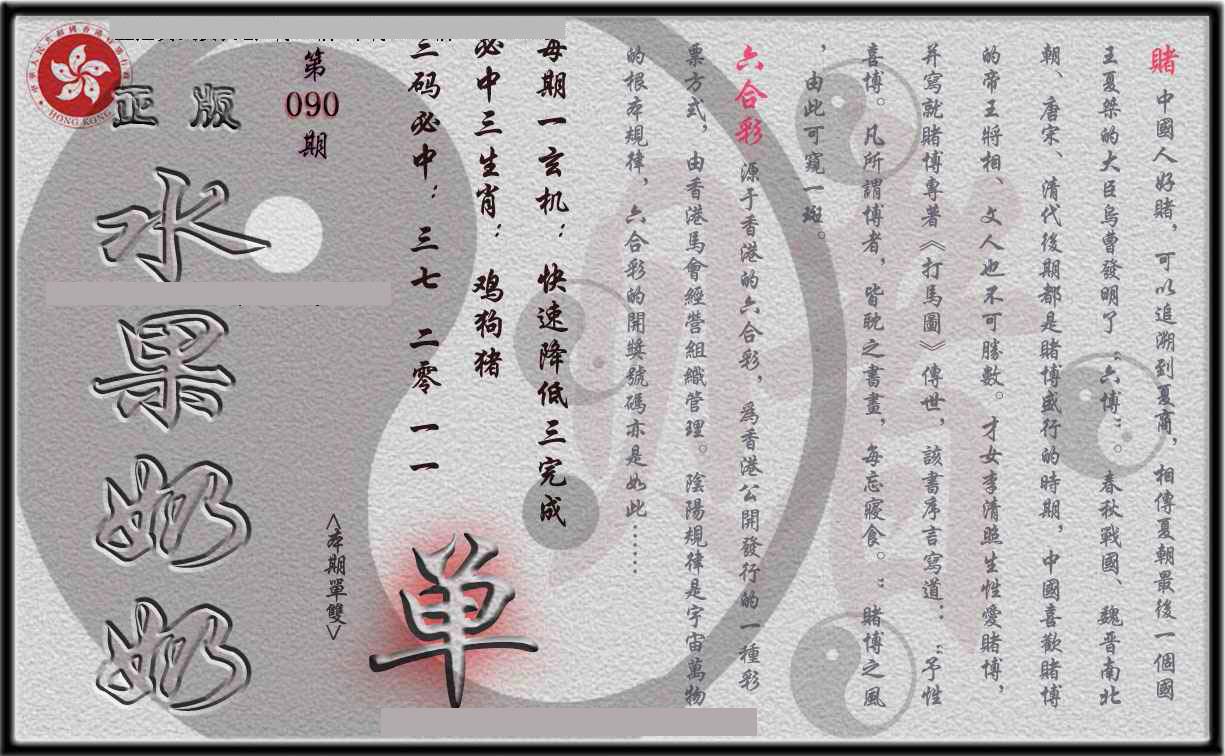 賭 中國人好賭，可以追溯到夏商，相傳夏朝最後一個國
王夏桀的大臣烏曹發明了“六博”。春秋戰國、魏晋南北
朝、唐宋、清代後期都是賭博盛行的時期，中國喜歡賭博
的帝王將相、文人也不可勝數。才女李清照生性愛賭博，
并寫就賭博專著《打馬圖》傳世，該書序言寫道：：“予性
喜博。凡所謂博者，皆耽之書畫，每忘寢食。”賭博之風
，由此可窺一斑。
六合彩 源于香港的六合彩，為香港公開發行的一種彩
票方式，由香港馬會經營組織管理。陰陽規律是宇宙萬物
的根本規律，六合彩的開獎號碼亦是如此……
每期一玄机：快速降低三完成
必中三生肖：鸡狗猪
三码必中：三七 二零 一一
單
第
090
期
<本期單雙>
HONG KONG
正版
水果奶奶